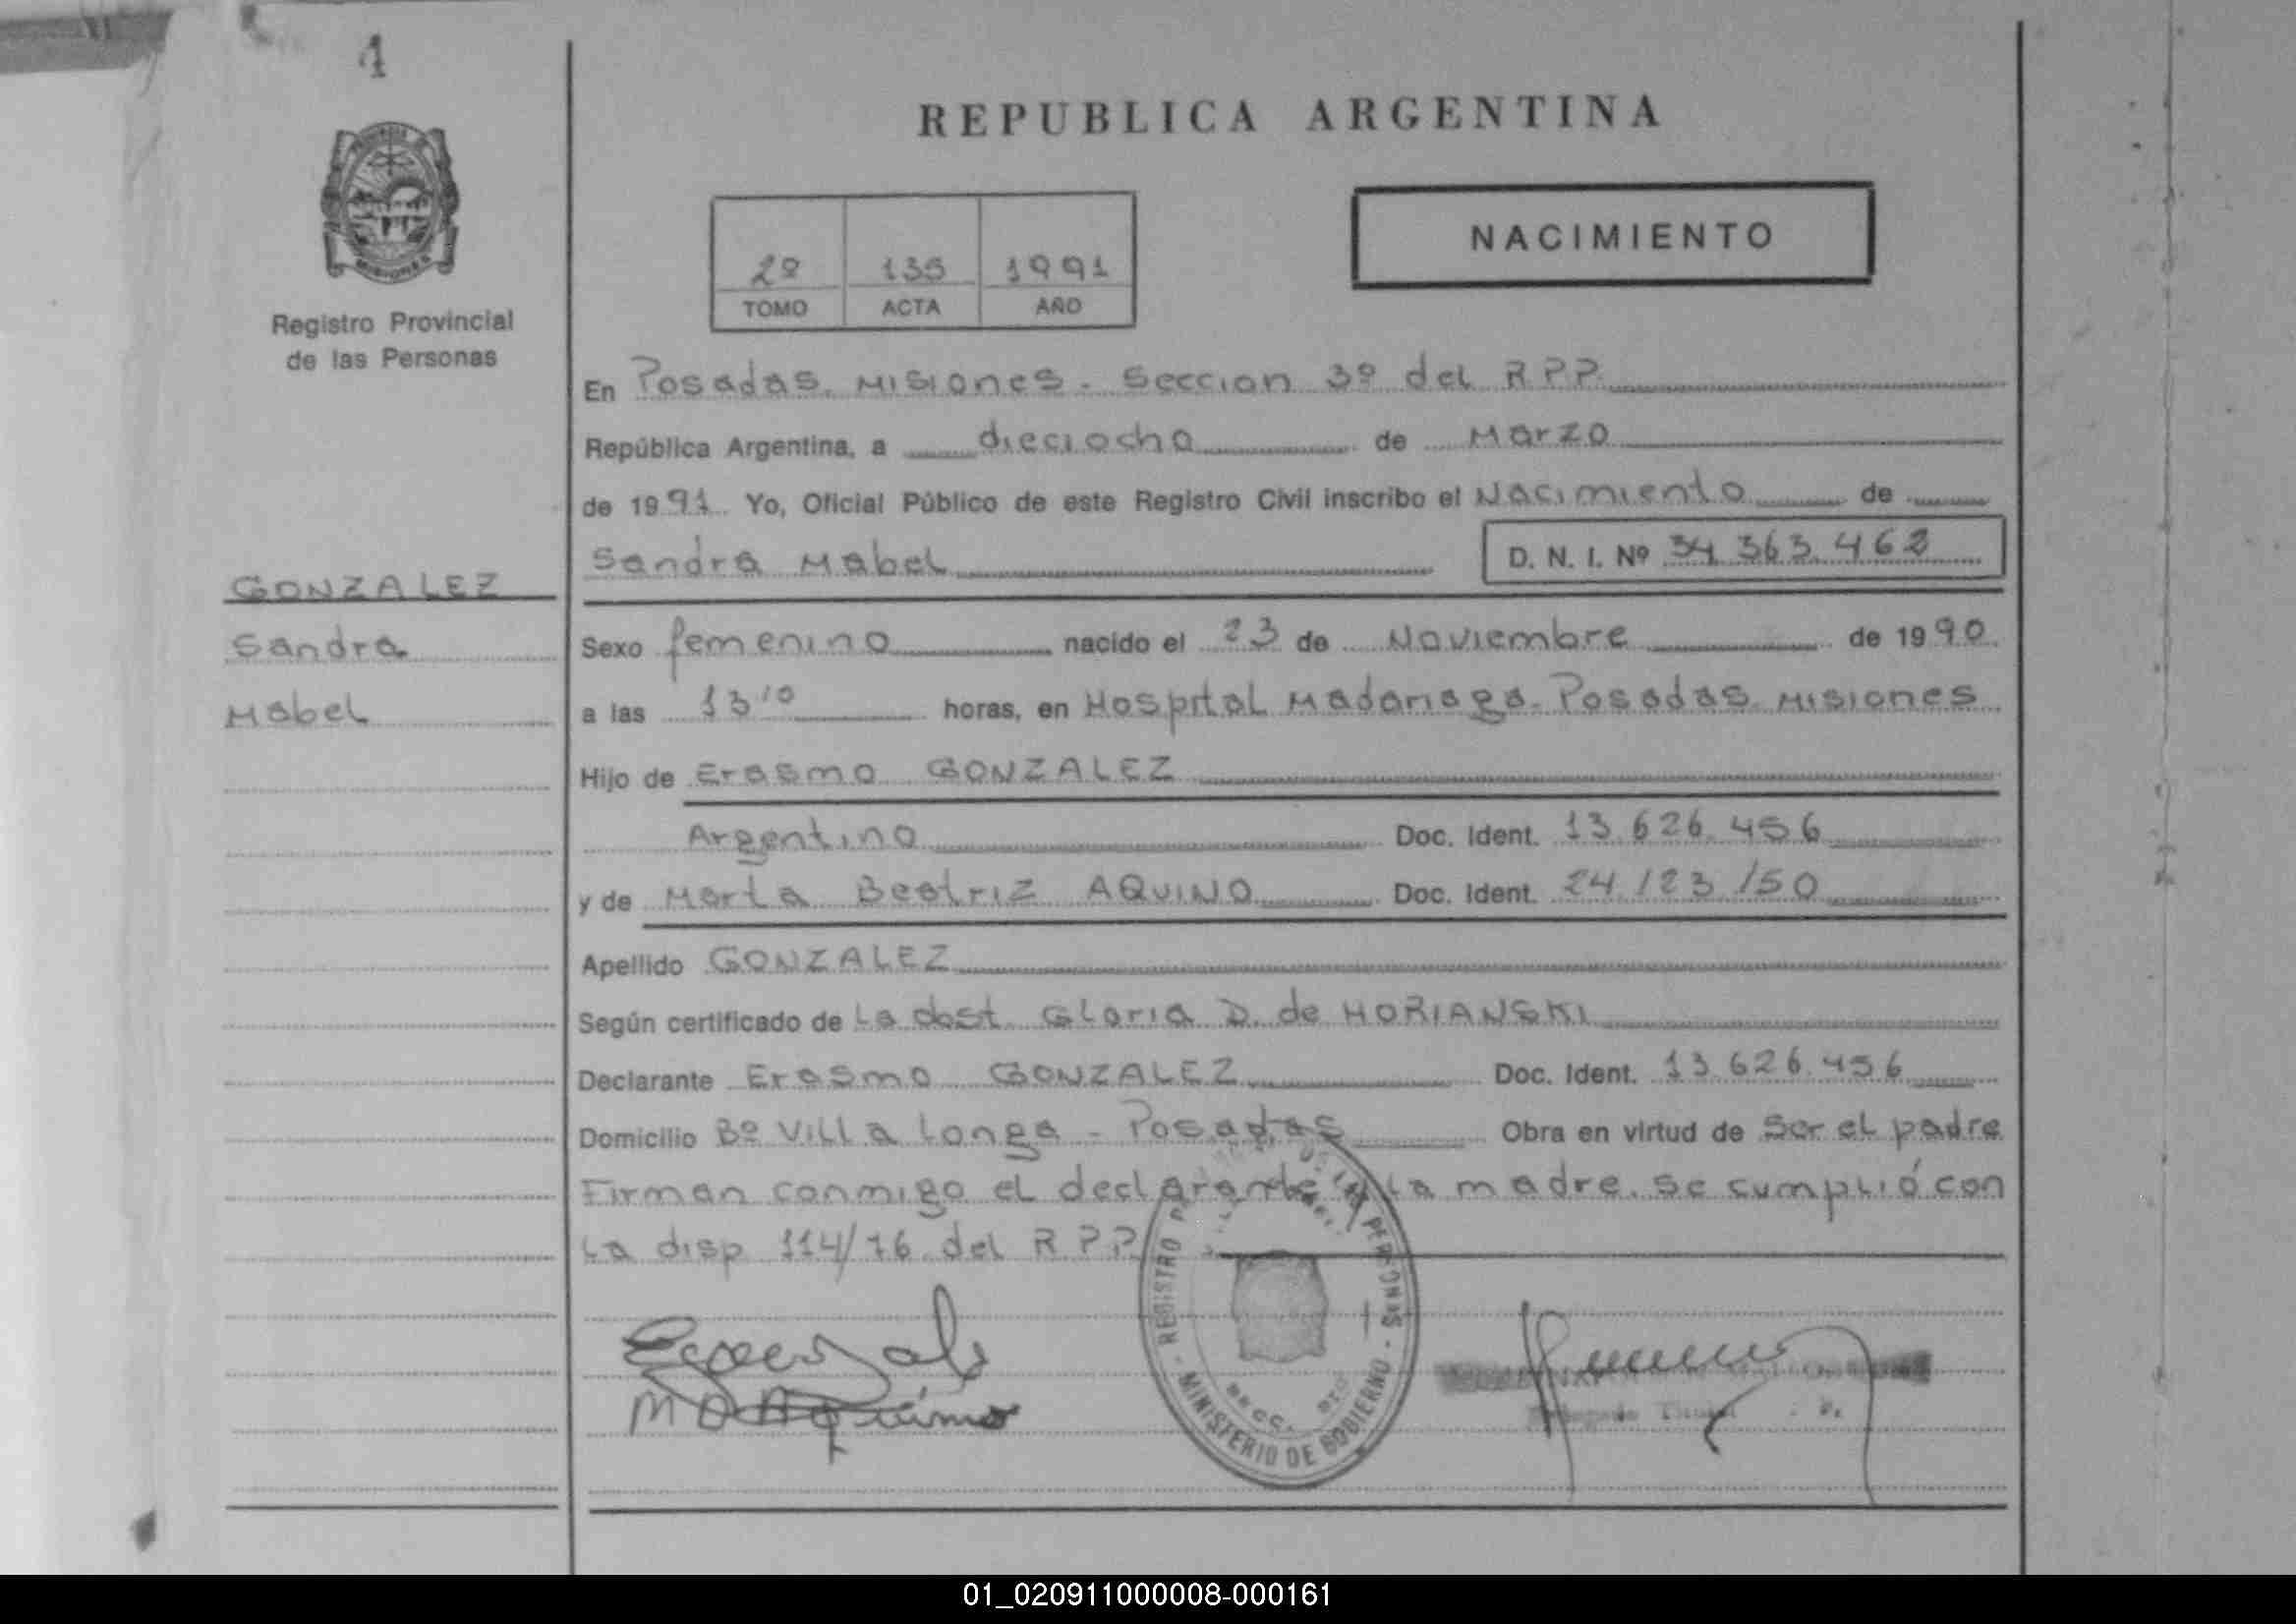 1
REPUBLICA ARGENTINA
NACIMIENTO
2º 135 1991
TOMO ACTA AÑO
Registro Provincial
de las Personas
En Posadas. Misiones. Seccion 3º del R.P.P.
República Argentina, a dieciocho de Marzo
de 1991. Yo, Oficial Público de este Registro Civil inscribo el Nacimiento de
Sandra Mabel D. N. I. Nº 34.363.462
GONZALEZ
Sandra
Mabel
Sexo femenino nacido el 23 de Noviembre de 1990.
a las 13 10 horas, en Hospital Madariaga. Posadas. Misiones
Hijo de Erasmo GONZALEZ
Argentino Doc. Ident. 13.626.456
y de Marta Beatriz AQUINO Doc. Ident. 24.123.150
Apellido GONZALEZ
Según certificado de La obst. Gloria D. de HORIANSKI
Declarante Erasmo GONZALEZ Doc. Ident. 13.626.456
Domicilio Bº Villa Longa - Posadas Obra en virtud de Ser el padre
Firman conmigo el declarante y la madre. se cumplió con
La disp. 114/76 del R.P.P.
REGISTRO DE LAS PERSONAS
MINISTERIO DE GOBIERNO
M B Aquino
01_020911000008-000161